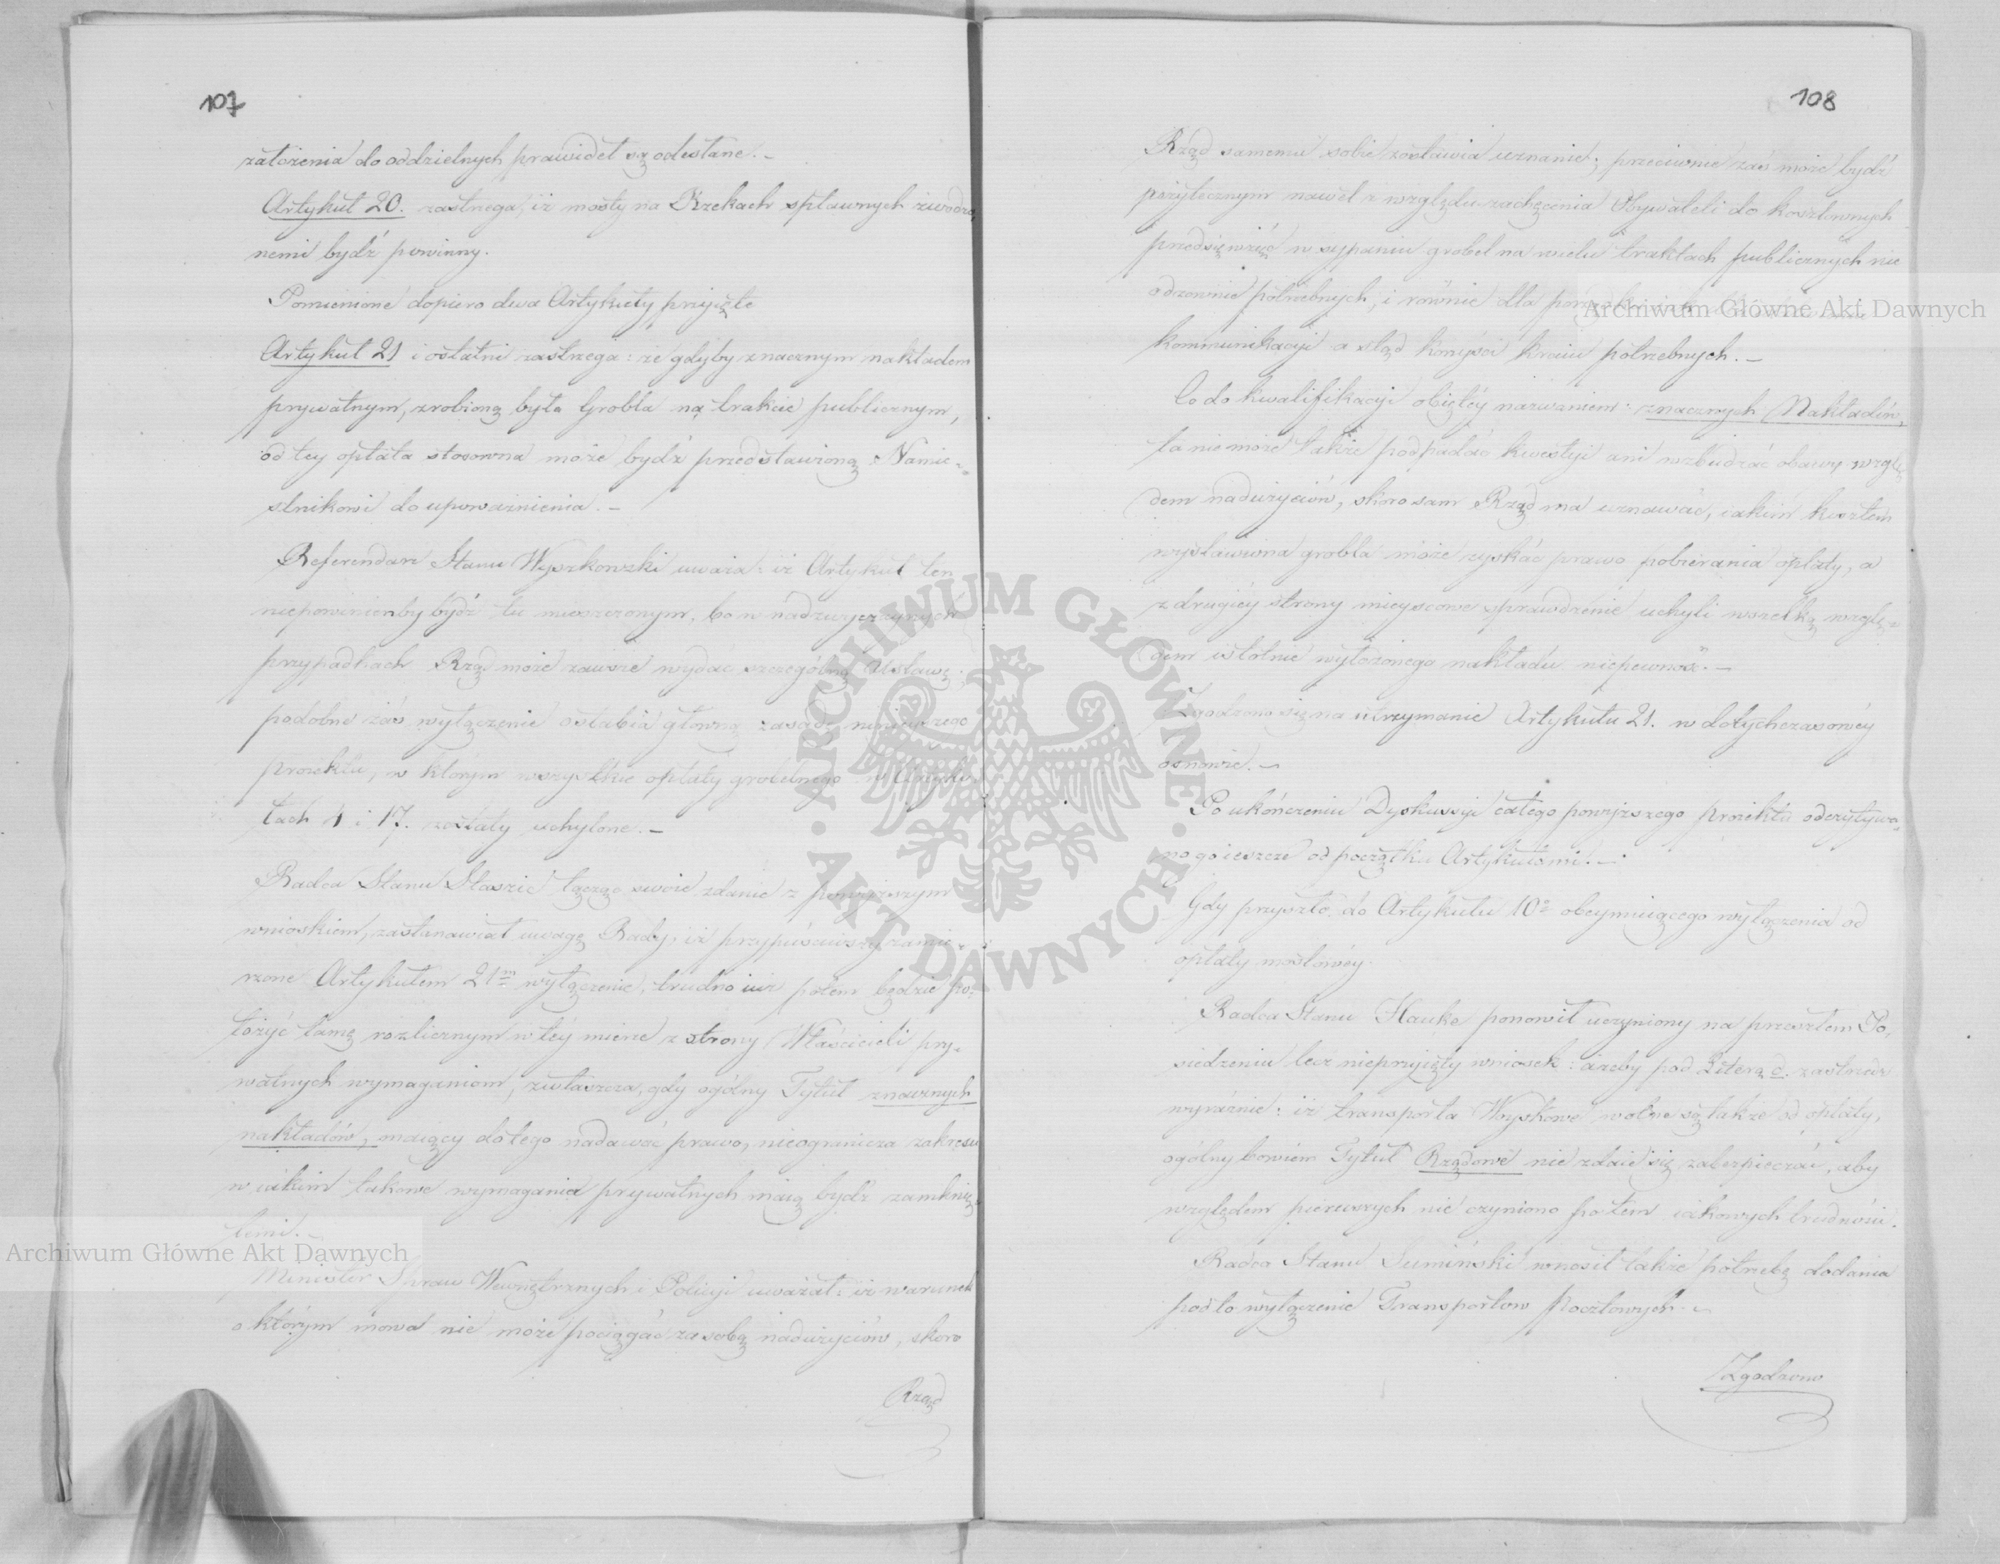 107
założenia do oddzielnych prawideł są odesłane. –
Artykuł 20. zastrzega, iż mosty na Rzekach spławnych zwodzo„
nemi bydź powinny.
Pomienione dopiero dwa Artykuły przyięte
Artykuł 21 i ostatni zastrzega: że gdyby znacznym nakładem
prywatnym, zrobioną była Grobla na trakcie publicznym,
od tey opłata stosowna może bydź przedstawioną Namie-„
stnikowi do upoważnienia. –
Referendarz Stanu Wyszkowski uważa: iż Artykuł ten
niepowinienby bydź tu mieszczonym, bo w nadzwyczaynych
przypadkach Rząd może zawsze wydać szczególną Ustawę;
podobne zaś wyłączenie osłabia główną zasadę ninieyszego
proiektu, w którym wszystkie opłaty grobelnego w Artyku„
łach 4 i 17. zostały uchylone. –
Radca Stanu Staszic łącząc swoie zdanie z powyższym
wnioskiem, zastanawiał uwagę Rady, iż przypuściwszy zamie„
rzone Artykułem 21m wyłączenie, trudno iuż potem będzie po„
łożyć tamę rozlicznym w tey mierze z strony Właścicieli pry„
watnych wymaganiom, zwłaszcza, gdy ogólny Tytuł znacznych
nakładów, maiący do tego nadawać prawo, nieogranicza zakresu
w iakim takowe wymagania prywatnych maią bydź zamknię„
temi. –
Minister Spraw Wewnętrznych i Policyi uważał: iż warunek
o którym mowa nie może pociągać za sobą nadużyciów, skoro
Rząd
108
Rząd samemu sobie zostawia uznanie; przeciwnie zaś może bydź
pożytecznym nawet z względu zachęcenia Obywateli do kosztownych
przedsięwzięć w sypaniu grobel na wielu traktach publicznych nie
odzownie potrzebnych, i równie dla
kommunikacyi a stąd korzyści kraiu potrzebnych. –
Co do kwalifikacyi obiętey nazwaniem: znacznych Nakładów,
ta nie może także podpadać kwestyi ani wzbudzać obawy wzglę
dem nadużyciów, skoro sam Rząd ma uznawać, iakim kosztem
wystawiona grobla może zyskać prawo pobierania opłaty, a
z drugiey strony mieyscowe sprawdzenie uchyli wszelką wzglę„
dem istotnie wyłożonego nakładu niepewność. –
Zgodzono się na utrzymanie Artykułu 21. w dotychczasowéy
osnowie. –
Po ukończeniu Dyskussyi całego powyższego proiektu odczytywa„
no go ieszcze od początku Artykułami. –
Gdy przyszło do Artykułu 10o obeymuiącego wyłączenia od
opłaty mostowéy.
Radca Stanu Hauke ponowił uczyniony na przeszłem Po„
siedzeniu lecz nieprzyięty wniosek: ażeby pod Literą d. zastrzedz
wyraźnie: iż transporta Woyskowe wolne są także od opłaty,
ogólny bowiem Tytuł Rządowe nie zdaie się zabezpieczać, aby
względem pierwszych nie czyniono potem iakowych trudności.
Radca Stanu Sumiński wnosił także potrzebę dodania
pod to wyłączenie Transportow Pocztowych. –
Zgodzono
Archiwum Główne Akt Dawnych
Archiwum Główne Akt Dawnych
ARCHIWUM GŁÓWNE · AKT DAWNYCH ·